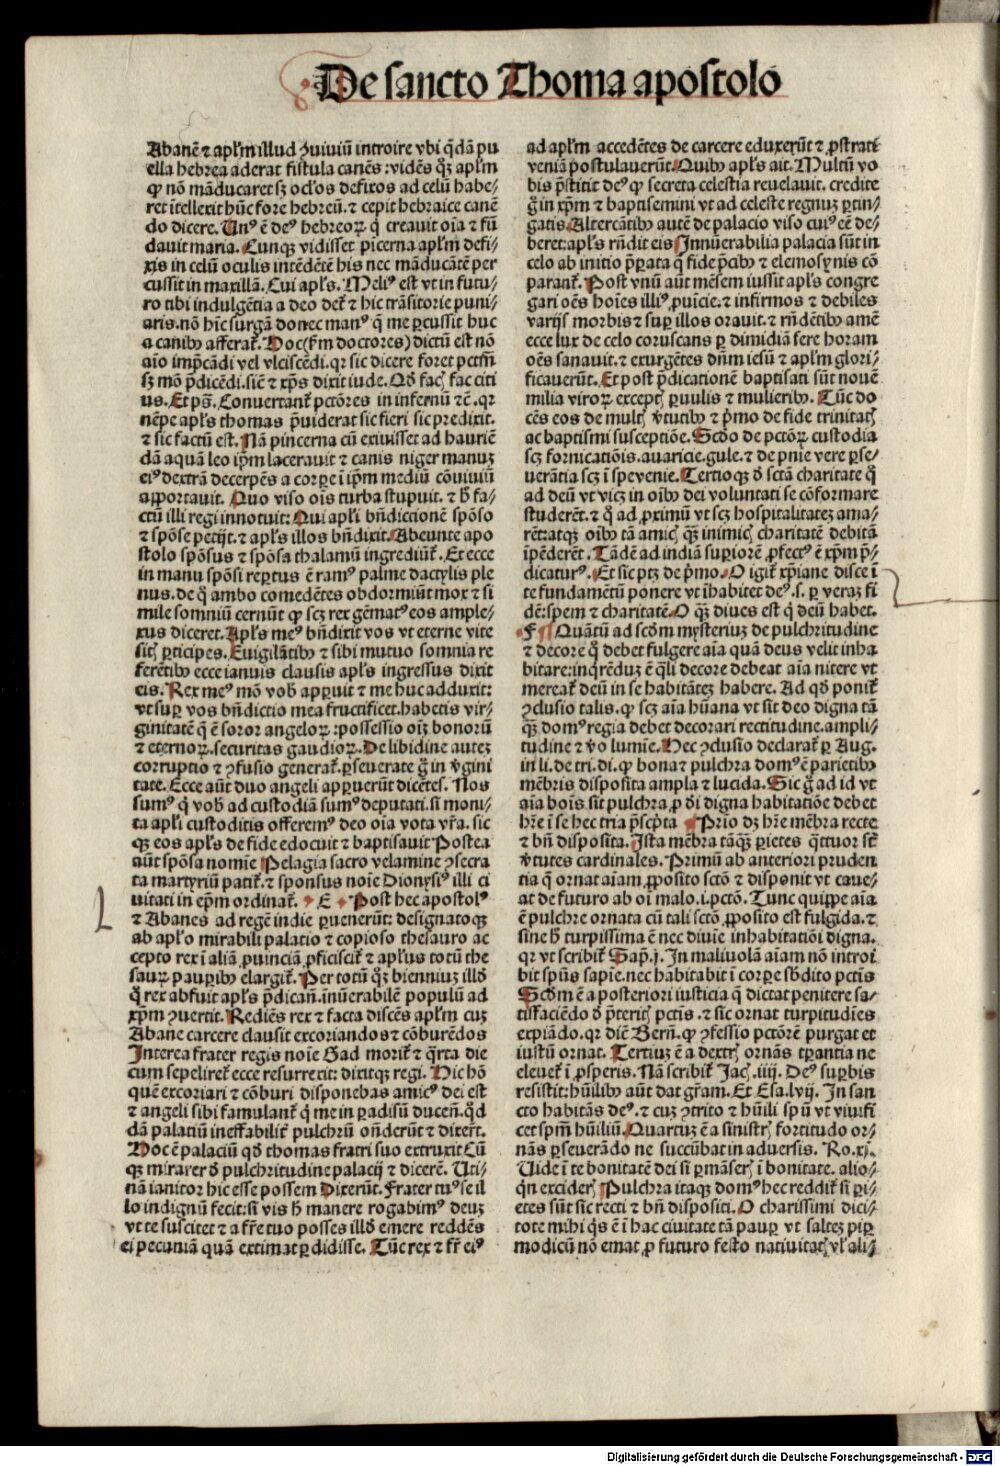 De sancto Thoma apostolo
Abanē ⁊ apl̄m illud ꝯuiuiū introire vbi q̄dā pu
ella hebrea aderat fistula canēs: vidēs qꝫ apl̄m
ꝙ nō māducaret sꝫ oc̄los defixos ad celū habe⸗
ret ītellexit hūc fore hebreū. ⁊ cepit hebraice canē
do dicere. Unꝰ ē deꝰ hebreoꝝ q̇ creauit oīa ⁊ fū
dauit maria. Cunqꝫ vidisset picerna apl̄m defi⸗
xis in celū oculis intēdētē his nec māducātē per
cussit in maxillā. Cui apl̄s. Meliꝰ est vt in futu⸗
ro tibi indulgētia a deo det̄ ⁊ hic trāsitorie puni⸗
aris. nō hīc surgā donec manꝰ q̄ me ꝑcussit huc
a canibꝰ afferat̄. Hoc (ẜm doctores) dictū est nō
aīo imp̄cādi vel vlciscēdi. qr sic dicere foret pctm̄
sꝫ mō p̄dicēdi. siē ⁊ xp̄s dixit iude. Qd̄ facꝭ fac citi
us. Et pꝭ. Conuertant̄ pctōres in infernū ⁊ē. qr
nēpe apl̄s thomas p̄uiderat sic fieri sic predixit.
⁊ sic factū est. Nā pincerna cū exiuisset ad haurie
dā aquā leo ip̄m lacerauit ⁊ canis niger manuꝫ
eiꝰ dextrā decerpēs a corꝑe ī ip̄m mediū cōuiuiū
apportauit. Quo viso oīs turba stupuit. ⁊ h̄ fa⸗
ctū illi regi innotuit: Qui apl̄i bn̄dictionē spōso
⁊ spōse petijt. ⁊ apl̄s illos bn̄dixit. Abeunte apo
stolo spōsus ⁊ spōsa thalamū ingrediūt̄. Et ecce
in manu spōsi reꝑtus ē ramꝰ palme dactylis ple
nus. de q̄ ambo comedētes obdormiūt mox ⁊ si
mile somniū cernūt ꝙ scꝫ rex gēmatꝰ eos ample⸗
xus diceret. Apl̄s meꝰ bn̄dixit vos vt eterne vite
sitꝭ ꝑticipes. Euigilātibꝰ ⁊ sibi mutuo somnia re
ferētibꝰ ecce ianuis clausis apl̄s ingressus dixit
eis. Rex meꝰ mō vob̄ apꝑuit ⁊ me huc adduxit:
vt suꝑ vos bn̄dictio mea fructificet. habetis vir⸗
ginitatē q̄ ē soror angeloꝝ: possessio oīꝫ bonorū
⁊ eternoꝝ. securitas gaudioꝝ. De libidine auteꝫ
corruptio ⁊ ꝯfusio generat̄. ꝑseuerate g̊ in v̄gini
tate. Ecce aūt duo angeli apꝑuerūt dicētes. Nos
sumꝰ q̇ vob̄ ad custodiā sumꝰ deputati. si moni⸗
ta apl̄i custoditis offeremꝰ deo oīa vota vr̄a. sic
qꝫ eos apl̄s de fide edocuit ⁊ baptisauit Postea
aūt spōsa nomīe Pelagia sacro velamine ꝯsecra
ta martyriū patit̄. ⁊ sponsus noīe Dionysiꝰ illi ci
uitati in ep̄m ordinat̄. E Post hec apostolꝰ
⁊ Abanes ad regē indie ꝑuenerūt: designatoqꝫ
ab apl̄o mirabili palatio ⁊ copioso thesauro ac
cepto rex ī aliā ꝓuinciā ꝓficiscit̄ ⁊ apl̄us totū the
sauꝝ pauꝑibꝰ elargit̄. Per totū qꝫ bienniuꝫ illd̄
q̊ rex abfuit apl̄s p̄dicans. inūerabilē populū ad
xp̄m ꝯuertit. Rediēs rex ⁊ facta discēs apl̄m cuꝫ
Abane carcere clausit excoriandos ⁊ cōburēdos
Interea frater regis noīe Gad morit̄ ⁊ q̄rta die
cum sepeliret̄ ecce resurrexit: dixitqꝫ regi. Hic hō
quē excoriari ⁊ cōburi disponebas amicꝰ dei est
⁊ angeli sibi famulant̄ q̇ me in ꝑadisū ducen̄. q̄d
dā palatiū ineffabilit̄ pulchrū on̄derūt ⁊ dixer̄t.
Hoc ē palaciū qd̄ thomas fratri suo extruxit Cū
qꝫ mirarer d̄ pulchritudine palacij ⁊ dicerē. Uti⸗
nā ianitor hic esse possem Dixerūt. Frater tuꝰ se il
lo indignū fecit: si vis h̄ manere rogabimꝰ deuꝫ
vt te suscitet ⁊ a fr̄e tuo posses illd̄ emere reddēs
ei pecuniā quā extimat ꝑdidisse. Tūc rex ⁊ fr̄ eiꝰ
ad apl̄m accedētes de carcere eduxerūt ⁊ ꝓstrati
veniā postulauerūt. Quibꝰ apl̄s ait. Multū vo
bis p̄stitit deꝰ ꝙ secreta celestia reuelauit. credite
g̊ in xp̄m ⁊ baptisemini vt ad celeste regnuꝫ ꝑtin⸗
gatis. Altercātibꝰ autē de palacio viso cuiꝰ eē de⸗
beret: apl̄s rn̄dit eis Innūerabilia palacia sūt in
celo ab initio p̄ꝑata q̄ fide p̄cibꝰ ⁊ elemosynis cō
parant̄. Post vnū aūt mēsem iussit apl̄s congre
gari oēs hoīes illiꝰ ꝓuīcie. ⁊ infirmos ⁊ debiles
varijs morbis ⁊ suꝑ illos orauit. ⁊ rn̄dētibꝰ amē
ecce lux de celo coruscans ꝑ dimidiā fere horam
oēs sanauit. ⁊ exurgētes dn̄m iesū ⁊ apl̄m glori⸗
ficauerūt. Et post p̄dicationē baptisati sūt nouē
milia viroꝝ exceptꝭ ꝑuulis ⁊ mulieribꝰ. Tūc do
cēs eos de multꝭ v̄tutibꝰ ⁊ p̄mo de fide trinitatꝭ
ac baptismi susceptiōe. Scd̄o de pctōꝝ custodia
scꝫ fornicatiōis. auaricie. gule. ⁊ de pnīe vere ꝑse⸗
uerātia scꝫ ī spe venie. Tertio qꝫ d̄ sctā charitate q̄
ad deū vt vicꝫ in oībꝰ dei voluntati se cōformare
studerēt. ⁊ q̊ ad ꝓximū vt scꝫ hospitalitateꝫ ama⸗
rēt: atqꝫ oībꝰ tā amicꝭ qꝫ inimicꝭ charitatē debitā
īpēderēt. Tādē ad indiā suꝑiorē ꝓfectꝰ ē xp̄m p̄⸗
dicaturꝰ. Et sic ptꝫ de p̄mo. O igit̄ xp̄iane disce ī
te fundamētū ponere vt īhabitet deꝰ. s. ꝑ veraꝫ fi
dē: spem ⁊ charitatē. O qꝫ diues est q̇ deū habet.
F Quātū ad scd̄m mysteriuꝫ de pulchritudine
⁊ decore q̊ debet fulgere aīa quā deus velit inha
bitare: inqrēduꝫ ē q̄li decore debeat aīa nitere vt
mereat̄ deū in se habitāteꝫ habere. Ad qd̄ ponit̄
ꝯclusio talis. ꝙ scꝫ aīa hūana vt sit deo digna tā
qꝫ domꝰ regia debet decorari rectitudine. ampli⸗
tudine ⁊ v̄o lumīe. Hec ꝯclusio declarat̄ ꝑ Aug.
in li. de tri. di. ꝙ bona ⁊ pulchra domꝰ ē parietibꝰ
mēbris disposita ampla ⁊ lucida. Sic g̊ ad id vt
aīa boīs sit pulchra ꝓ dī digna habitatiōe debet
hr̄e ī se hec tria p̄scpta Prīo dꝫ hr̄e mēbra recte
⁊ bn̄ disposita. Ista mēbra tāqꝫ ꝑietes q̄ttuor st̄
v̄tutes cardinales. Primū ab anteriori pruden
tia q̄ ornat aīam ꝓposito sctō ⁊ disponit vt caue⸗
at de futuro ab oī malo. i. pctō. Tunc quippe aīa
ē pulchre ornata cū tali sctō ꝓposito est fulgida. ⁊
sine h̄ turpissima ē nec diuīe inhabitatiōi digna.
qr vt scribit̄ Sap. j. In maliuolā aīam nō introi
bit spūs sapīe. nec habitabit ī corꝑe sb̄dito pctīs
Scd̄m ē a posteriori iusticia q̄ dictat penitere sa⸗
tisfaciēdo d̄ p̄teritꝭ pctīs. ⁊ sic ornat turpitudīes
expiādo. qr diē Bern̄. ꝙ ꝯfessio pctōrē purgat et
iustū ornat. Tertiuꝫ ē a dextrꝭ ornās tꝑantia ne
eleuet̄ ī ꝓsperis. Nā scribit̄ Jac̄. iiij. Deꝰ suꝑbis
resistit: hūilibꝰ aūt dat gr̄am. Et Esa. lvij. In san
cto habitās deꝰ. ⁊ cuꝫ ꝯtrito ⁊ hūili spū vt viuifi
cet sp̄m hūiliū. Quartuꝫ ē a sinistrꝭ fortitudo or⸗
nās ꝑseuerādo ne succūbat in aduersis. Ro. xj.
Uide ī te bonitatē dei si ꝑmāserꝭ ī bonitate. alio⸗
q̇n excīderꝭ Pulchra itaqꝫ domꝰ hec reddit̄ si ꝑi⸗
etes sūt sic recti ⁊ bn̄ dispositi. O charissimi dici⸗
tote mihi q̇s ē ī hac ciuitate tā pauꝑ vt salteꝫ piꝑ
modicū nō emat ꝓ futuro festo natiuitatꝭ vl̓ ali⸗
Digitalisierung gefördert durch die Deutsche Forschungsgemeinschaft - DFG